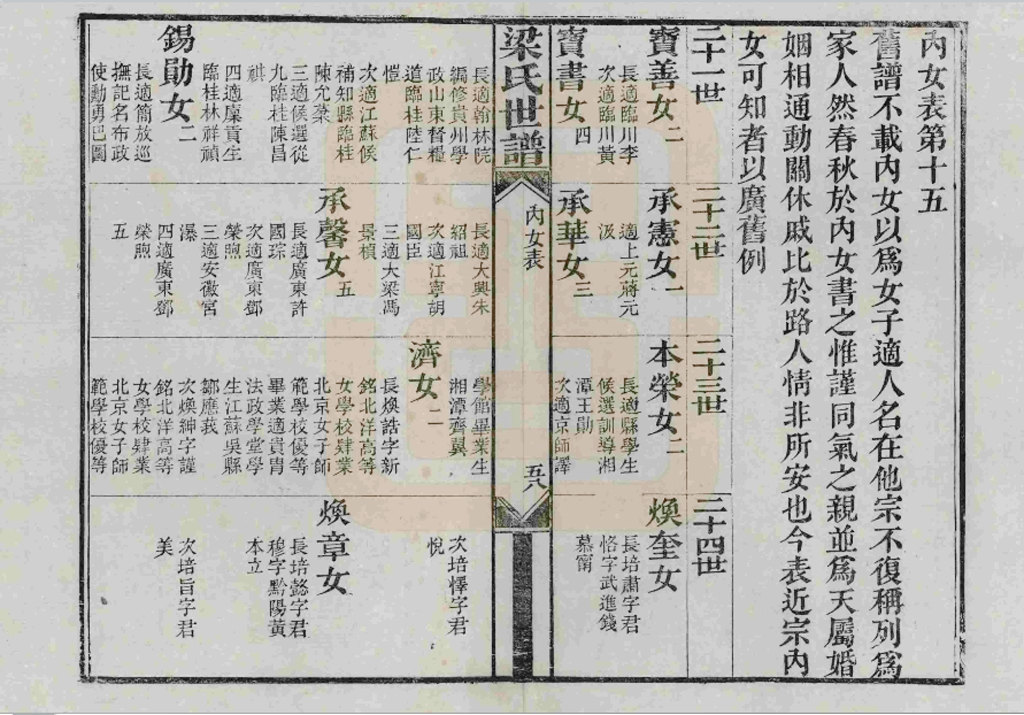 內女表第十五
舊譜不載內女以爲女子適人名在他宗不復稱列爲
家人然春秋於內女書之惟謹同氣之親並爲天屬婚
姻相通動關休戚比於路人情非所安也今表近宗內
女可知者以廣舊例
二十一世
二十二世
二十三世
二十四世
寶善女二
長適臨川李
次適臨川黃
承憲女一
適上元蔣元
汲
本榮女二
長適縣學生
候選訓導湘
潭王勛
次適京師譯
煥奎女
長培肅字君
恪字武進錢
慕甯
寶書女四
承華女三
梁氏世譜
內女表
五八
長適翰林院
編修貴州學
政山東督糧
道臨桂陸仁
愷
次適江蘇候
補知縣臨桂
陳允棻
三適候選從
九臨桂陳昌
祺
四適廩貢生
臨桂林祥禎
長適大興朱
紹祖
次適江寧胡
國臣
三適大梁馮
景楨
學館畢業生
湘潭齊巽
次培懌字君
悅
錫勛女二
長適簡放巡
撫記名布政
使勳勇巴圖
承馨女五
長適廣東許
國琮
次適廣東鄧
榮煦
三適安徽宮
瀑
四適廣東鄧
榮煦
五
濟女二
長煥誥字新
銘北洋高等
女學校肄業
北京女子師
範學校優等
畢業適貴胄
法政學堂學
生江蘇吳縣
鄒應莪
次煥紳字謹
銘北洋高等
女學校肄業
北京女子師
範學校優等
煥章女
長培懿字君
穆字黔陽黃
本立
次培旨字君
美